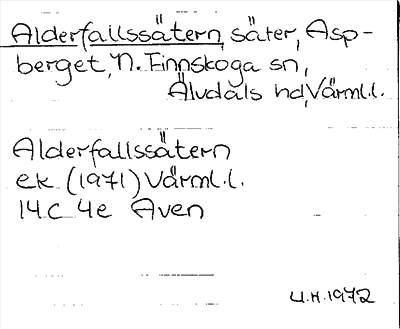 Alderfallssätern, säter, Asp-
berget, N. Finnskoga sn,
Älvdals hd, Värml.l.
Alderfallssätern
ek (1971) Värml.l.
14C 4e Aven
U.H. 1972